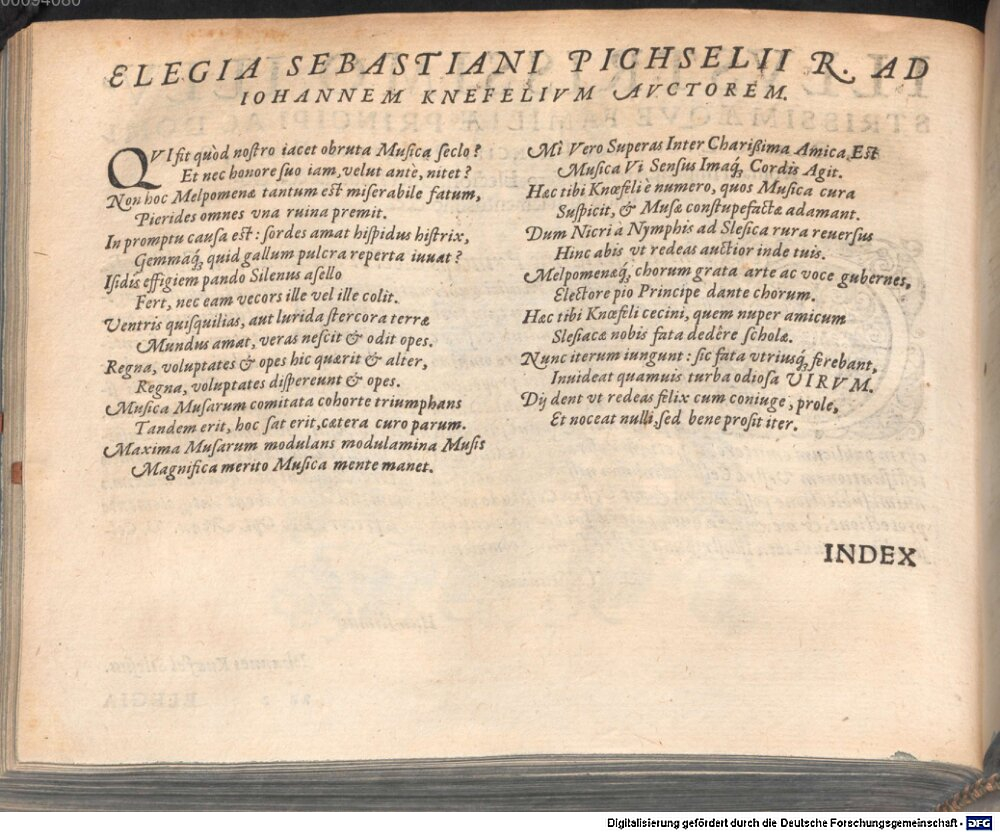 00094080
ELEGIA SEBASTIANI PICHSELII R. AD
IOHANNEM KNEFELIVM AVCTOREM.
QVI fit quòd nostro iacet obruta Musica seclo?
Et nec honore suo iam, velut ante, nitet?
Non hoc Melpomenæ tantum est miserabile fatum,
Pierides omnes vna ruina premit.
In promptu causa est: sordes amat hispidus histrix,
Gemmaq́; quid gallum pulcra reperta iuuat?
Isidis effigiem pando Silenus asello
Fert, nec eam vecors ille vel ille colit.
Ventris quisquilias, aut lurida stercora terræ
Mundus amat, veras nescit & odit opes.
Regna, voluptates & opes hic quærit & alter,
Regna, voluptates dispereunt & opes.
Musica Musarum comitata cohorte triumphans
Tandem erit, hoc sat erit, cætera curo parum.
Maxima Musarum modulans modulamina Musis
Magnifica merito Musica mente manet.
Mi Vero Superas Inter Charißima Amica Est
Musica Vi Sensus Imaq́; Cordis Agit.
Hæc tibi Knœfeli è numero, quos Musica cura
Suspicit, & Musæ constupefactæ adamant.
Dum Nicri a Nymphis ad Slesica rura reuersus
Hinc abis vt redeas auctior inde tuis.
Melpomenæq́; chorum grata arte ac voce gubernes,
Electore pio Principe dante chorum.
Hæc tibi Knœfeli cecini, quem nuper amicum
Slesiacæ nobis fata dedêre scholæ.
Nunc iterum iungunt: sic fata vtriusq́; ferebant,
Inuideat quamuis turba odiosa VIRVM.
Dij dent vt redeas felix cum coniuge, prole,
Et noceat nulli, sed bene prosit iter.
INDEX
Digitalisierung gefördert durch die Deutsche Forschungsgemeinschaft - DFG